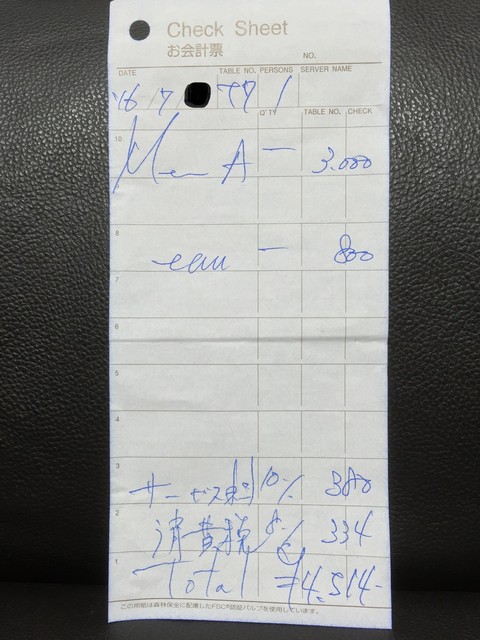 Check Sheet
お会計票
NO.
DATE TABLE NO. PERSONS SERVER NAME
'16 / 7 / 1
Q'TY TABLE NO. CHECK
10
Menu A — 3.000
8
eau — 800
7
6
5
4
3
サービス料 10% 380
2
消費税 8% 334
1
Total ¥4.514-
この用紙は森林保全に配慮したFSC®認証パルプを使用しています。